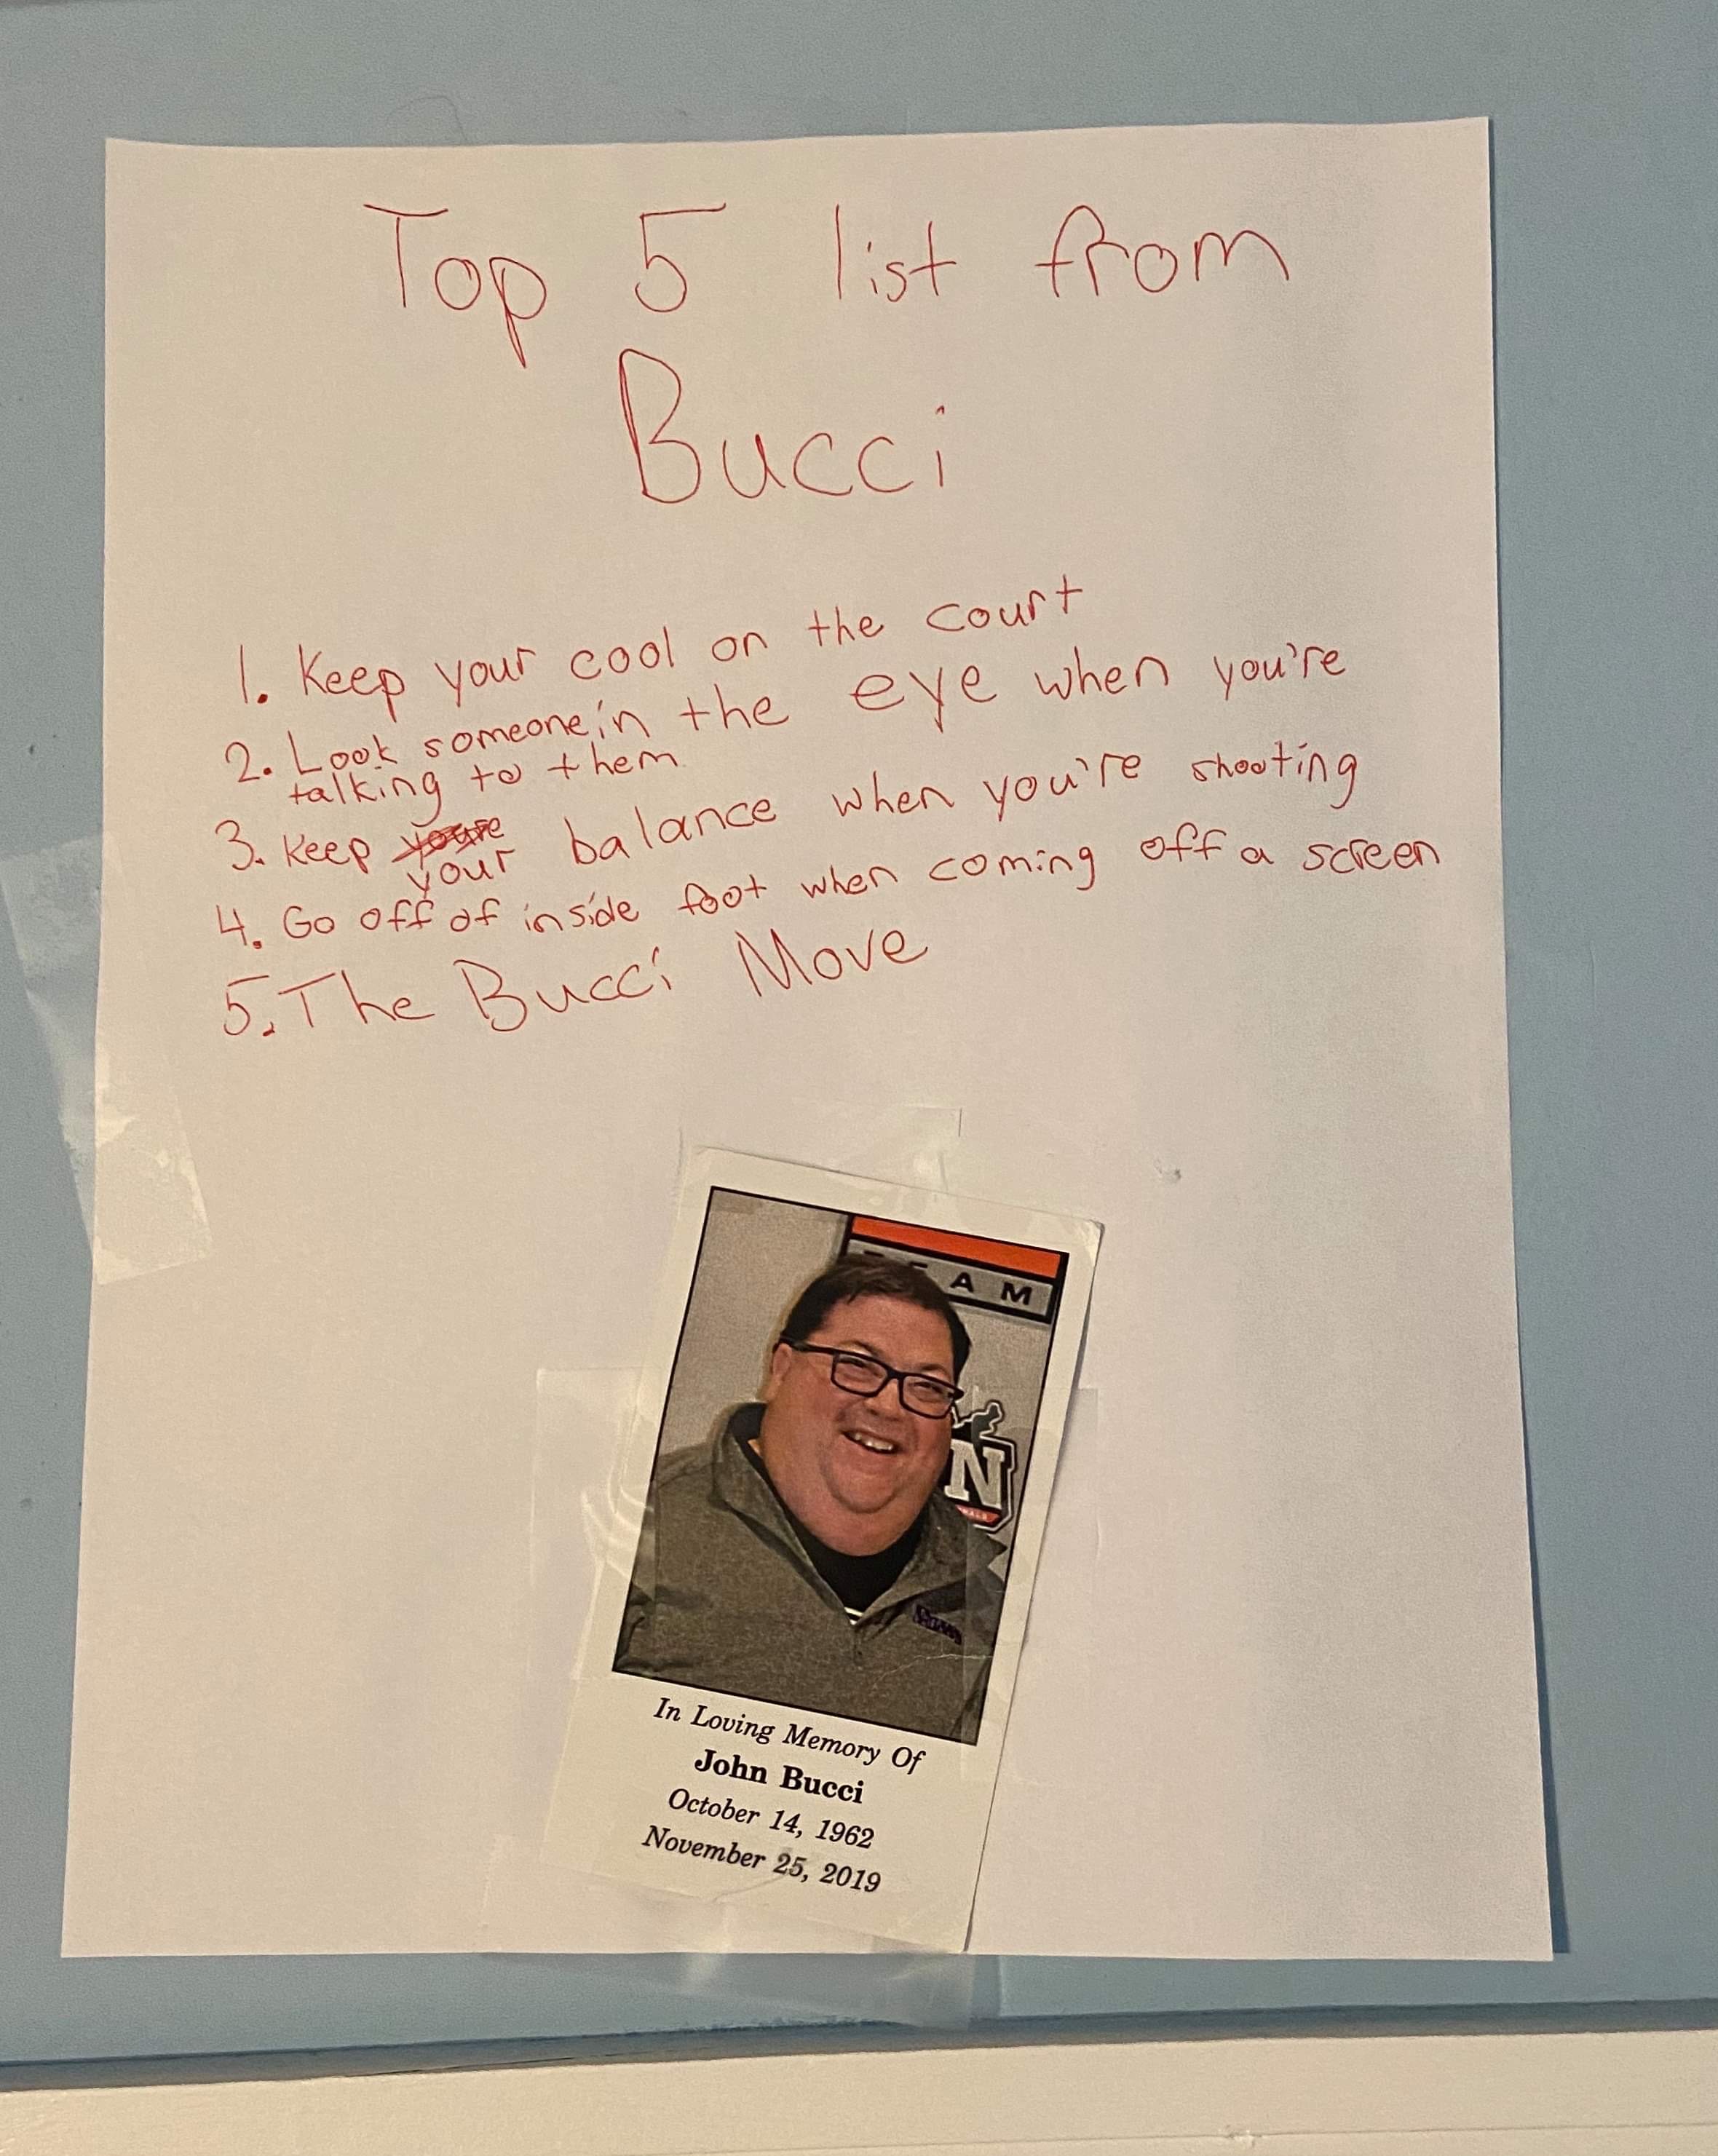 Top 5 list from
Bucci
1. Keep your cool on the court
2. Look someone in the eye when you're
talking to them
3. Keep youre balance when you're shooting
your
4. Go off of inside foot when coming off a screen
5. The Bucci Move
EAM
N
In Loving Memory Of
John Bucci
October 14, 1962
November 25, 2019